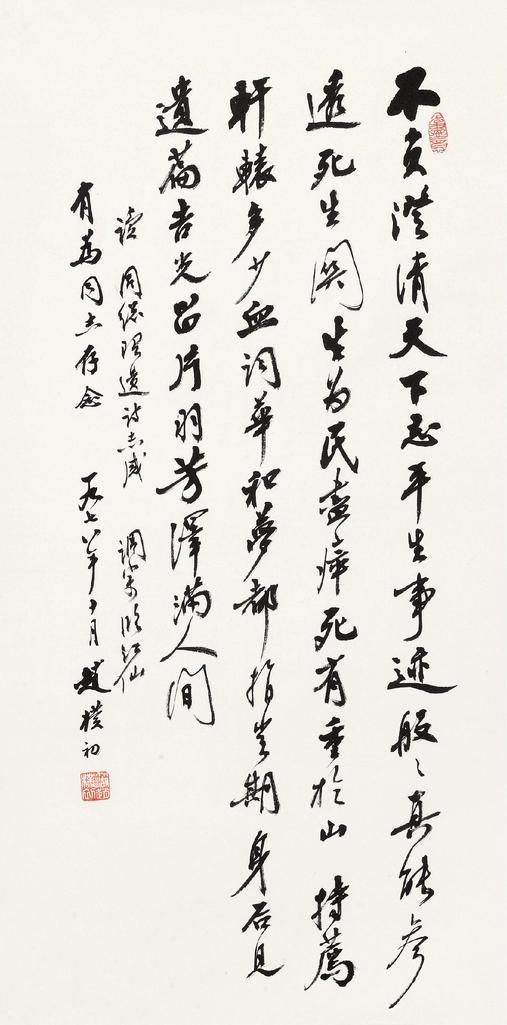 不負澄清天下志平生事迹般〻真能參
透死生關生為民盡瘁死有重於山 持薦
軒轅多少血詞華和夢都捐豈期身后見
遺篇吉光留片羽芳澤滿人間
讀 周總理遺詩志感 調寄臨江仙
有為同志存念 一九七八年十月 趙樸初